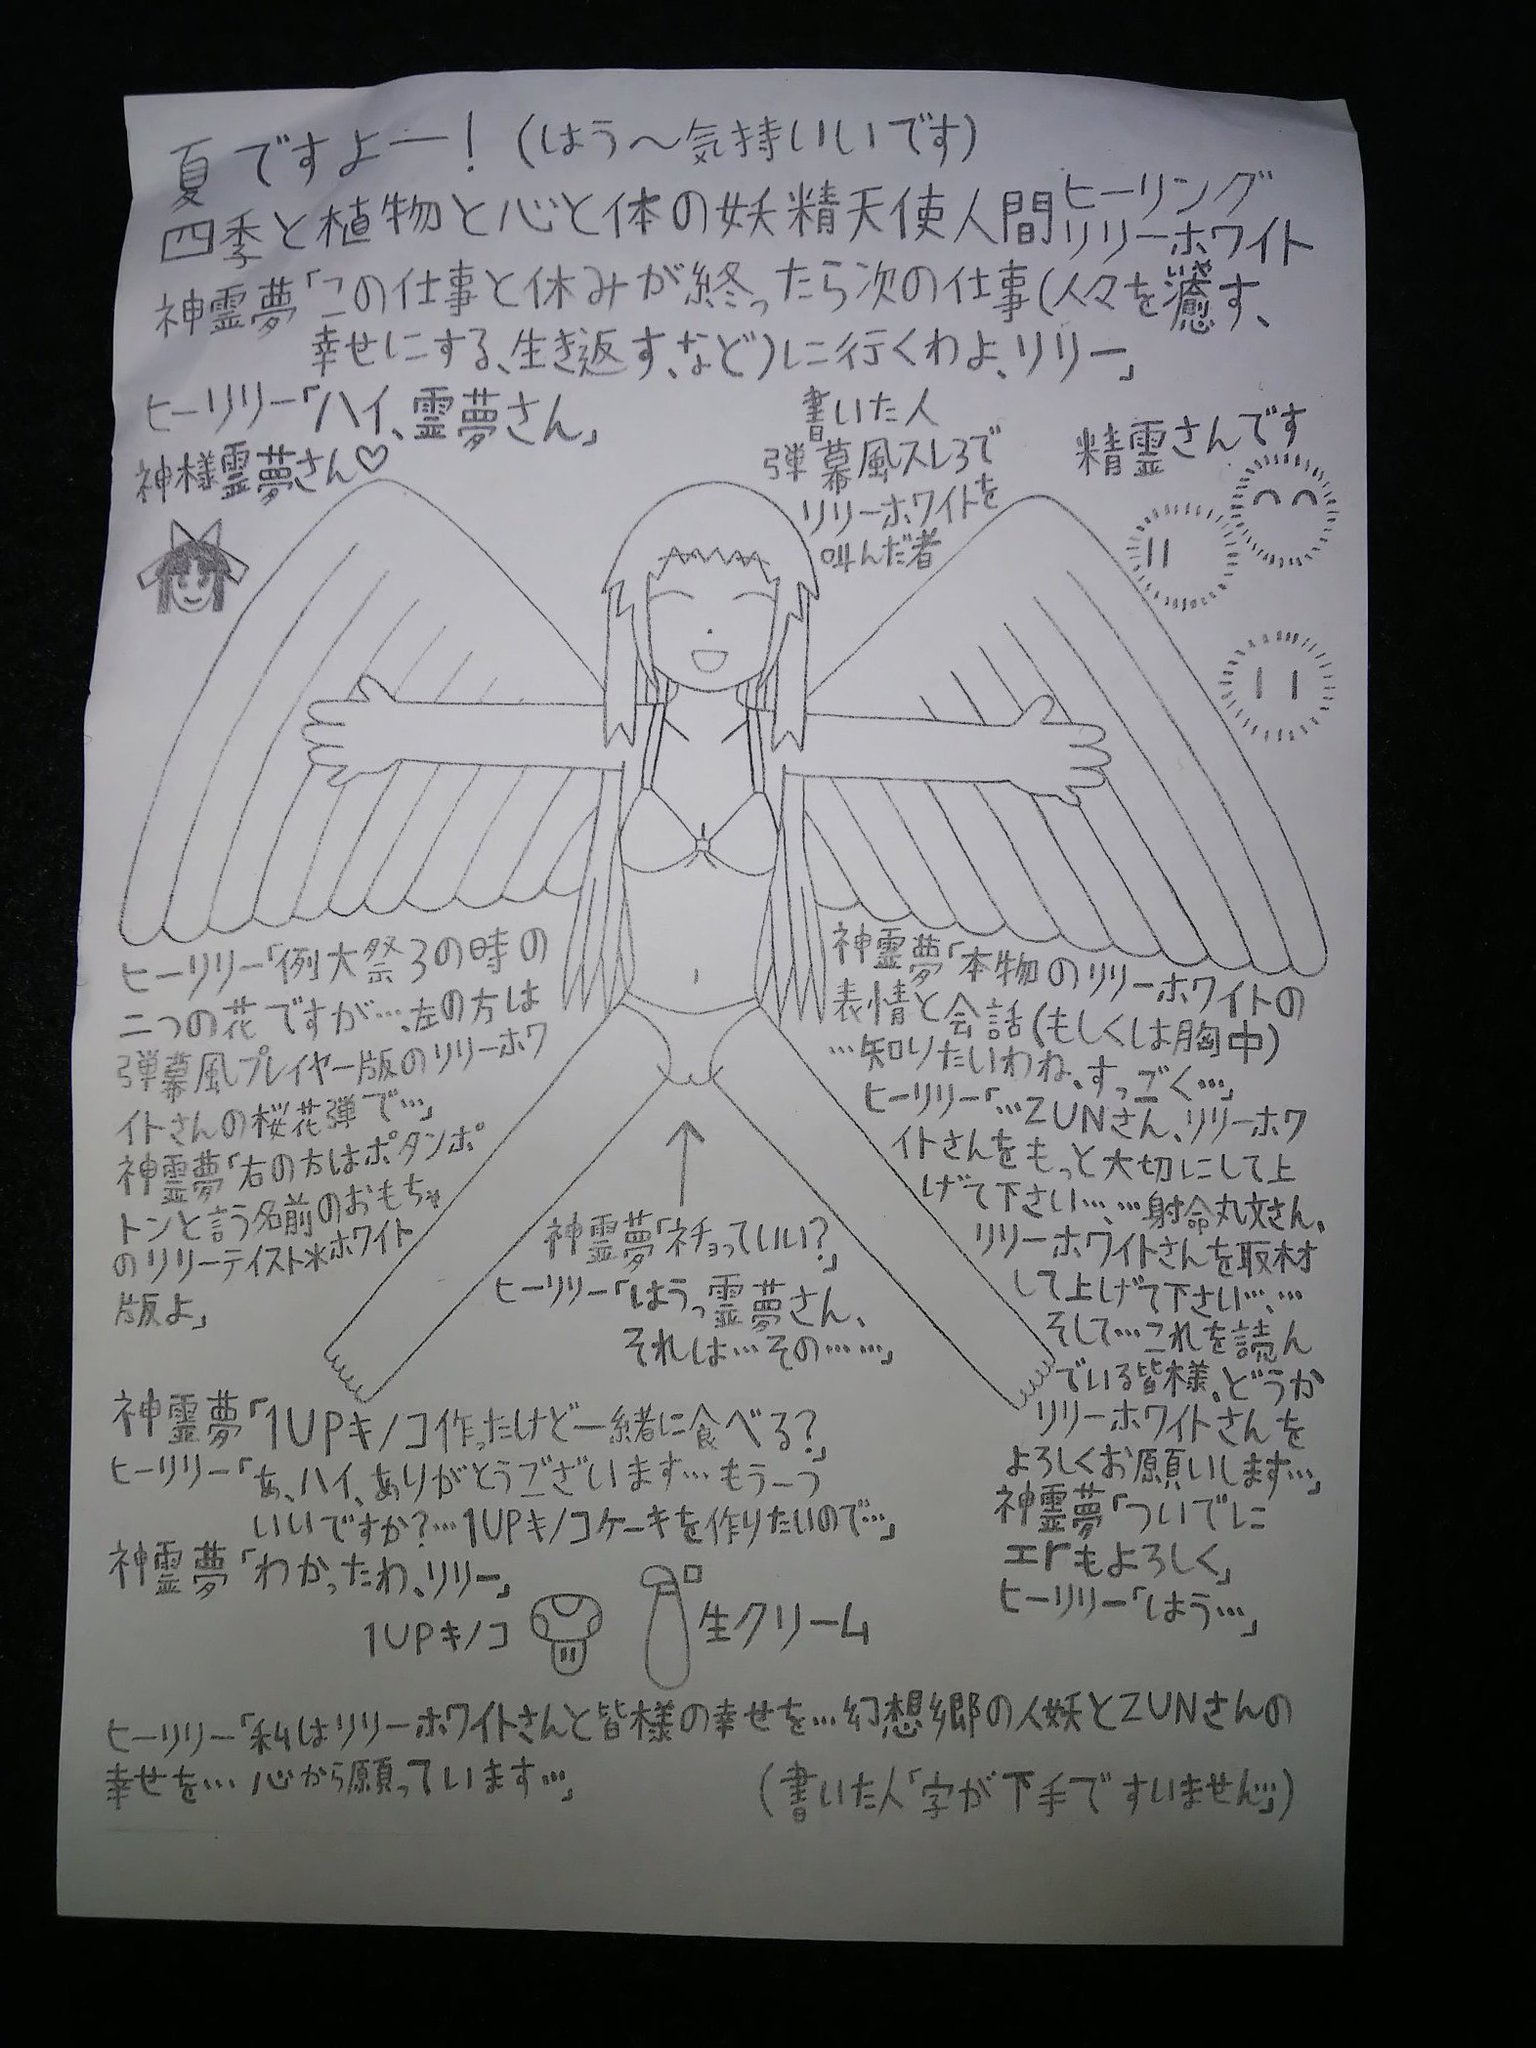 夏ですよー!(はう～気持いいです)
四季と植物と心と体の妖精天使人間ヒーリング
リリーホワイト
神霊夢「この仕事と休みが終ったら次の仕事(人々を癒す、
いや
幸せにする、生き返す、など)に行くわよ、リリー」
ヒーリリー「ハイ、霊夢さん」
神様霊夢さん♡
書いた人
弾幕風スレ3で
リリーホワイトを
叫んだ者
精霊さんです
ヒーリリー「例大祭3の時の
二つの花ですが…、左の方は
弾幕風プレイヤー版のリリーホワ
イトさんの桜花弾で…」
神霊夢「右の方はポタンポ
トンと言う名前のおもちゃ
のリリーテイスト*ホワイト
版よ」
神霊夢「本物のリリーホワイトの
表情と会話(もしくは胸中)
…知りたいわね、すっごく…」
ヒーリリー「…ZUNさん、リリーホワ
イトさんをもっと大切にして上
げて下さい…、…射命丸文さん、
リリーホワイトさんを取材
して上げて下さい…、…
そして…これを読ん
でいる皆様、どうか
リリーホワイトさんを
よろしくお願いします…」
神霊夢「ついでに
エrもよろしく」
ヒーリリー「はう…」
↑
神霊夢「ネチョっていい?」
ヒーリリー「はうっ霊夢さん、
それは…その……」
神霊夢「1UPキノコ作ったけど一緒に食べる?」
ヒーリリー「あ、ハイ、ありがとうございます…もう一つ
いいですか?…1UPキノコケーキを作りたいので…」
神霊夢「わかったわ、リリー」
1UPキノコ
生クリーム
ヒーリリー「私はリリーホワイトさんと皆様の幸せを…幻想郷の人妖とZUNさんの
幸せを…心から願っています…」
(書いた人「字が下手ですいません…」)